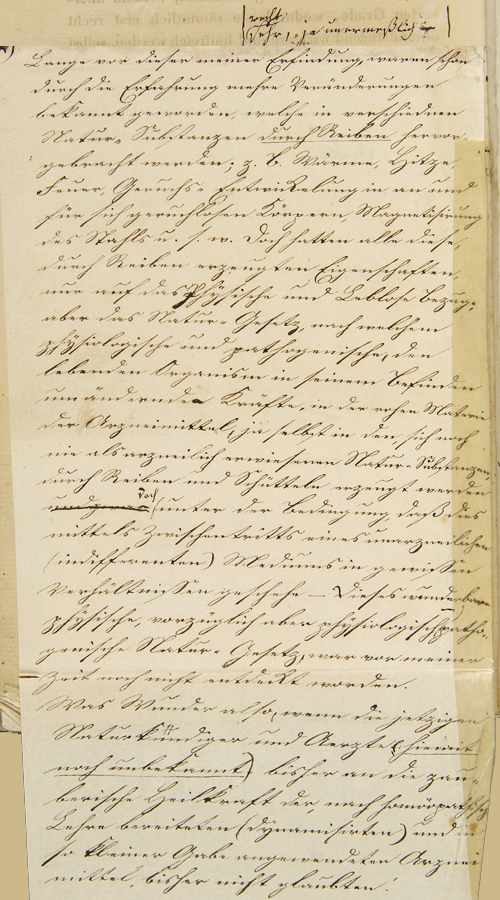 recht
sehr, ja unermeßlich
Lange vor dieser meiner Erfindung, waren schon
durch die Erfahrung mehre Veränderungen
bekannt geworden, welche in verschiednen
Natur-Substanzen durch Reiben hervor-
gebracht werden; z. B. Wärme, Hitze,
Feuer, Geruchs-Entwickelung in an und
für sich geruchlosen Körpern, Magnetisirung
des Stahls u. s. w. Doch hatten alle diese,
durch Reiben erzeugten Eigenschaften,
nur auf das Physische und Leblose Bezug;
aber das Natur-Gesetz, nach welchem
physiologische und pathogenische, den
lebenden Organism in seinem Befinden
umändernde Kräfte, in der rohen Materie
der Arzneimittel, ja selbst in den sich noch
nie als arzneilich erwiesenen Natur-Substanzen,
durch Reiben und Schütteln erzeugt werden
doch
(unter der Bedingung daß dies
mittels Zwischentritts eines unarzneilichen
(indifferenten) Mediums in gewissen
Verhältnissen geschehe — Dieses wunderbare
physische, vorzüglich aber physiologisch patho-
genische Natur-Gesetz, war vor meiner
Zeit noch nicht entdeckt worden.
Was Wunder also, wenn die jetzigen
Naturkündiger und Aerzte (hiemit
noch unbekannt) bisher an die zau-
berische Heilkraft der, nach homöopathisch
Lehre bereiteten (dynamisirten) und in
so kleiner Gabe angewendeten Arznei
mittel, bisher nicht glaubten!